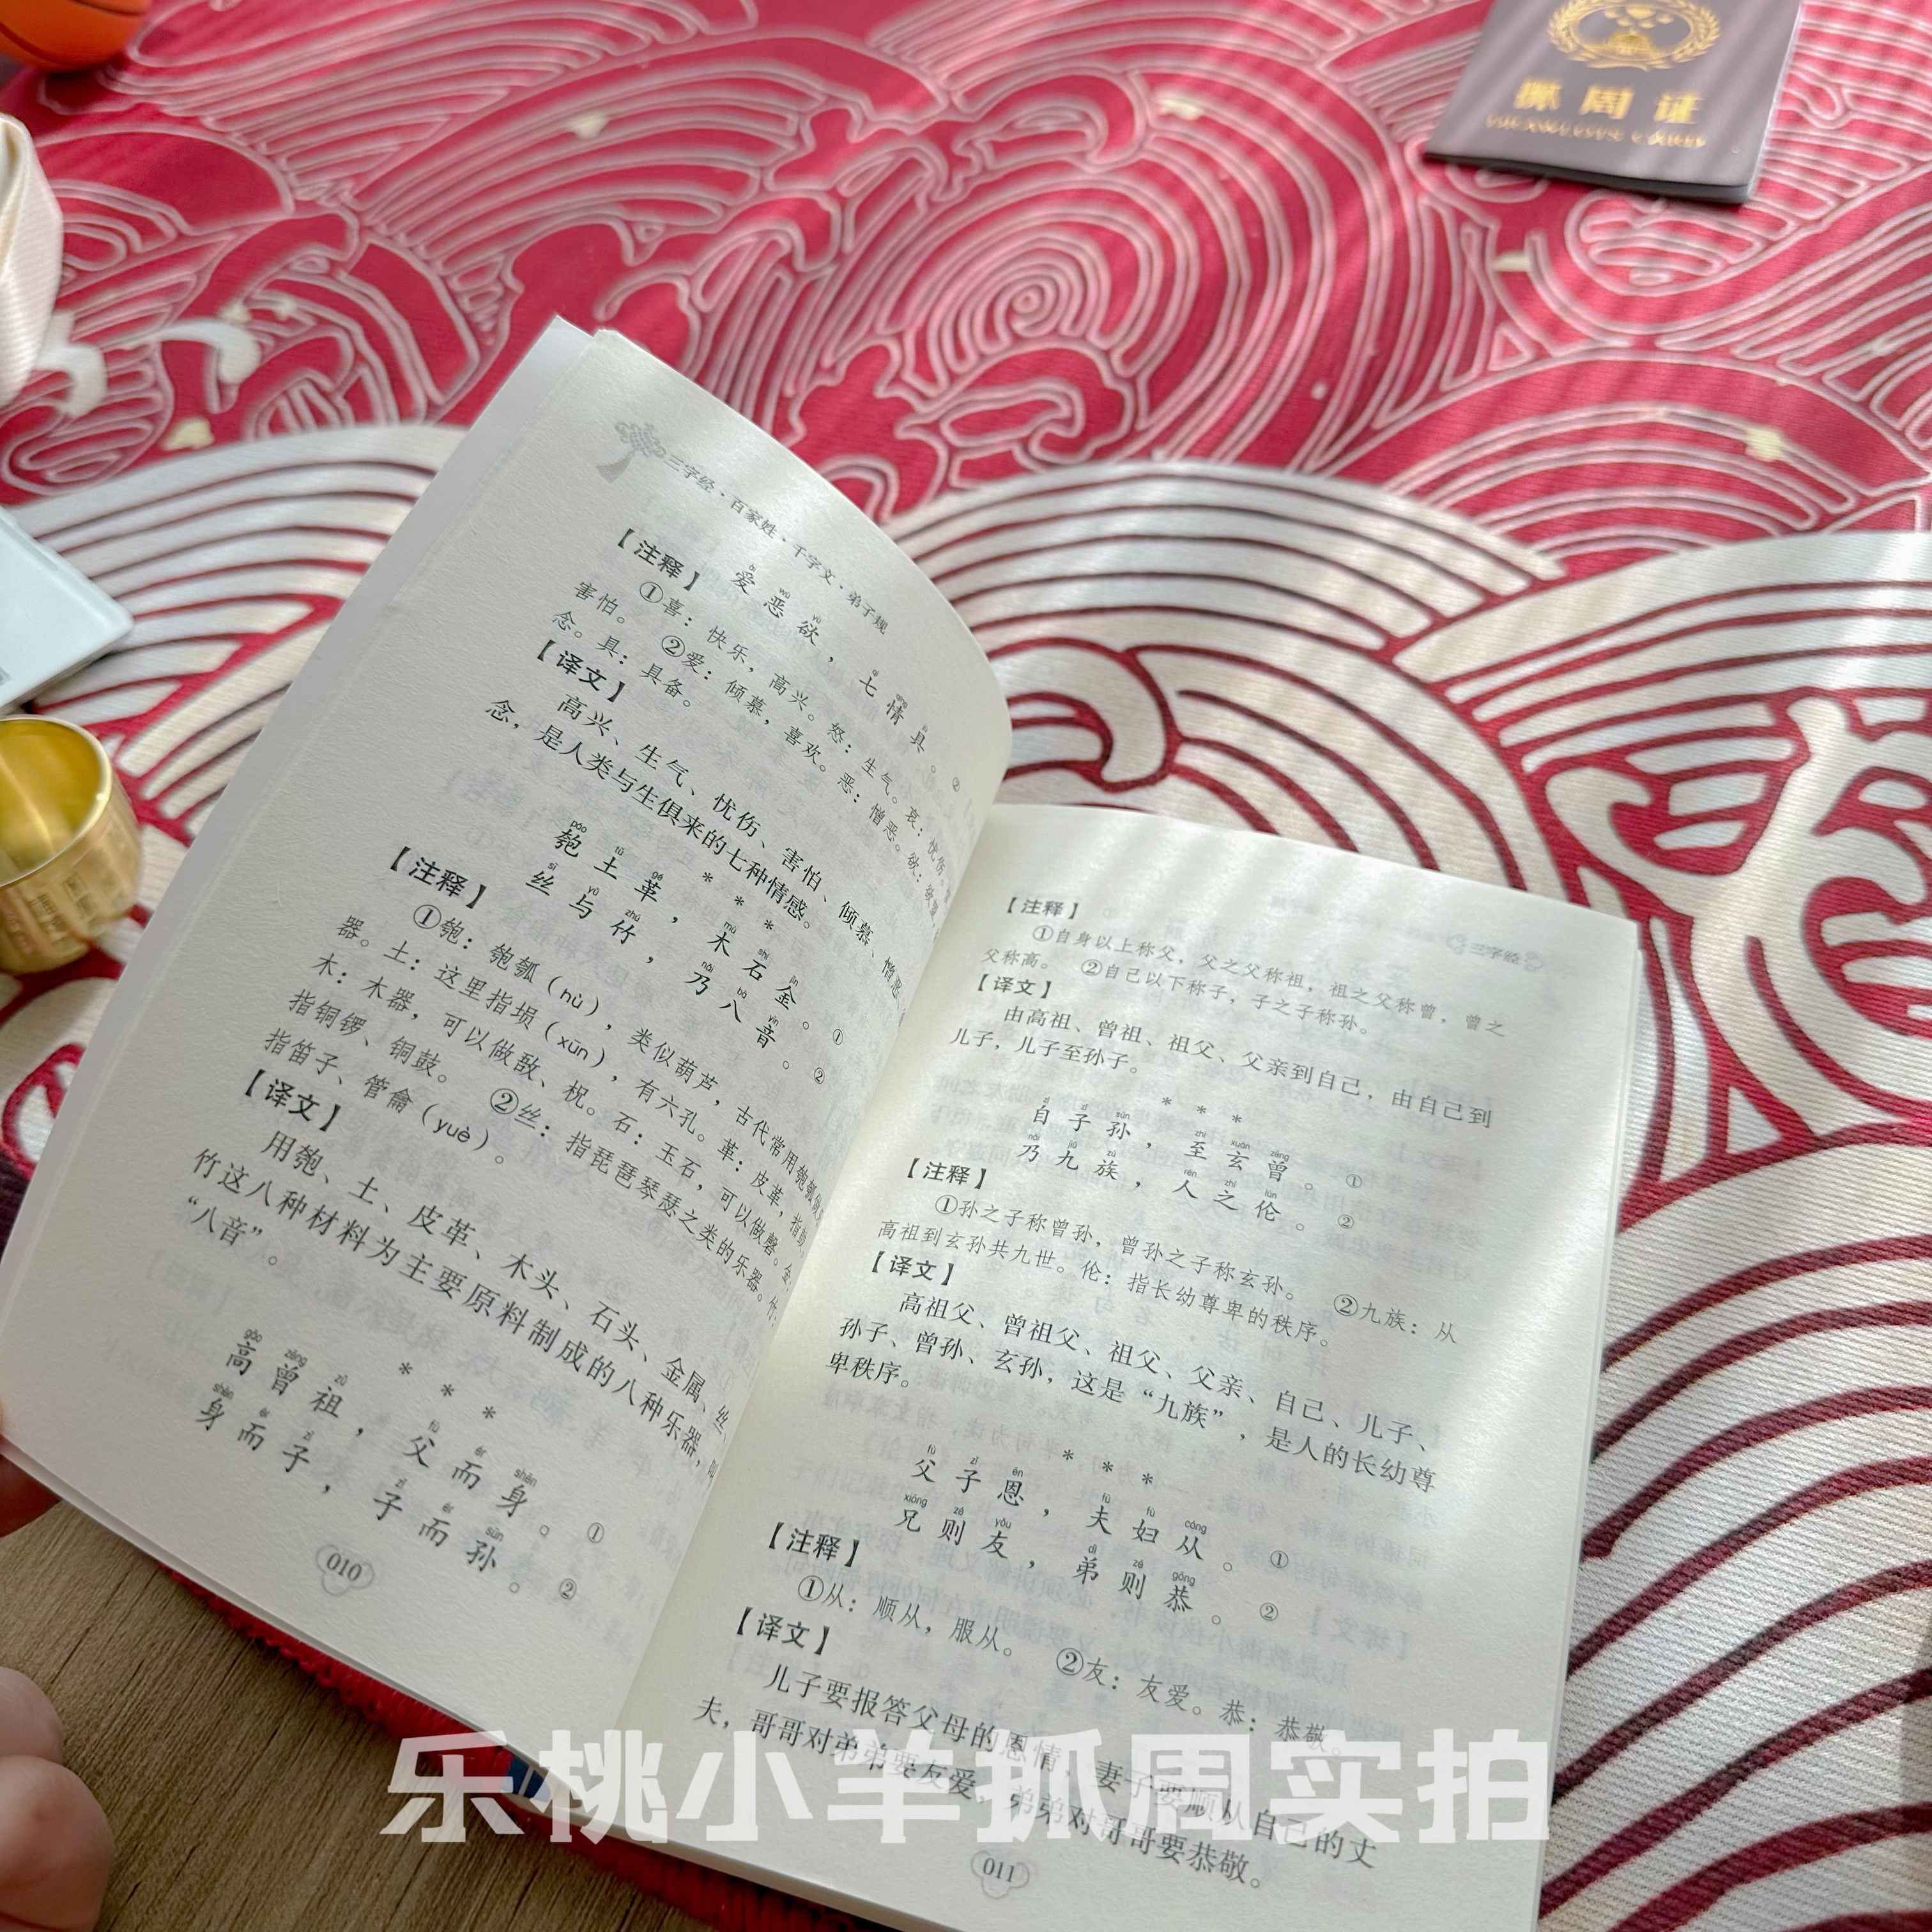 抓周证
三字经·百家姓·千字文·弟子规
ài wù yù qī qíng jù
爱恶欲，七情具。②
【注释】
①喜：快乐，高兴。怒：生气。哀：忧伤。
害怕。 ②爱：倾慕，喜欢。恶：憎恶。欲：
念。具：具备。
【译文】
高兴、生气、忧伤、害怕、倾慕、憎恶、
念，是人类与生俱来的七种情感。
* * *
páo tǔ gé mù shí jīn
匏土革，木石金。①
sī yǔ zhú nǎi bā yīn
丝与竹，乃八音。②
【注释】
①匏：匏瓠（hù），类似葫芦，古代常用匏瓠做
器。土：这里指埙（xūn），有六孔。革：皮革，指
木：木器，可以做敔、柷。石：玉石，可以做磬。金：
指铜锣、铜鼓。 ②丝：指琵琶琴瑟之类的乐器。竹：
指笛子、管龠（yuè）。
【译文】
用匏、土、皮革、木头、石头、金属、丝、
竹这八种材料为主要原料制成的八种乐器，叫
“八音”。
* * *
gāo zēng zǔ fù ér shēn
高曾祖，父而身。①
shēn ér zǐ zǐ ér sūn
身而子，子而孙。②
010
三字经
【注释】
①自身以上称父，父之父称祖，祖之父称曾，曾之
父称高。 ②自己以下称子，子之子称孙。
【译文】
由高祖、曾祖、祖父、父亲到自己，由自己到
儿子，儿子至孙子。
* * *
zì zǐ sūn zhì xuán zēng
自子孙，至玄曾。①
nǎi jiǔ zú rén zhī lún
乃九族，人之伦。②
【注释】
①孙之子称曾孙，曾孙之子称玄孙。 ②九族：从
高祖到玄孙共九世。伦：指长幼尊卑的秩序。
【译文】
高祖父、曾祖父、祖父、父亲、自己、儿子、
孙子、曾孙、玄孙，这是“九族”，是人的长幼尊
卑秩序。
* * *
fù zǐ ēn fū fù cóng
父子恩，夫妇从。①
xiōng zé yǒu dì zé gōng
兄则友，弟则恭。②
【注释】
①从：顺从，服从。 ②友：友爱。恭：恭敬。
【译文】
儿子要报答父母的恩情，妻子要顺从自己的丈
夫，哥哥对弟弟要友爱，弟弟对哥哥要恭敬。
011
乐桃小羊抓周实拍